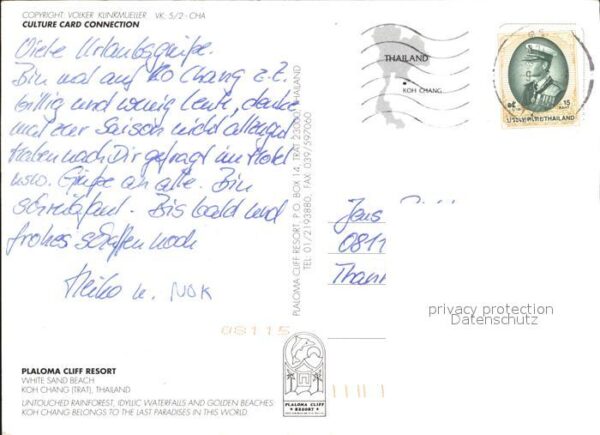 COPYRIGHT: VOLKER KLINKMUELLER VK. 5/2 · CHA
CULTURE CARD CONNECTION
Viele Urlaubsgrüße.
Bin mal auf Ko Chang z.Z.
billig und wenig Leute, denke
mal zur Saison nicht allzugut
Haben nach Dir gefragt im Hotel
usw. Grüße an alle. Bin
schreibfaul. Bis bald und
frohes schaffen noch
Heiko u. NOK
PLALOMA CLIFF RESORT
WHITE SAND BEACH
KOH CHANG (TRAT), THAILAND
UNTOUCHED RAINFOREST, IDYLLIC WATERFALLS AND GOLDEN BEACHES:
KOH CHANG BELONGS TO THE LAST PARADISES IN THIS WORLD.
PLALOMA CLIFF RESORT P.O. BOX 14, TRAT 23000, THAILAND
TEL 01/2193880, FAX 039/597060
08115
PLALOMA CLIFF
RESORT
THAILAND
KOH CHANG
15
ประเทศไทย THAILAND
Jens
0811
Thann
privacy protection
Datenschutz